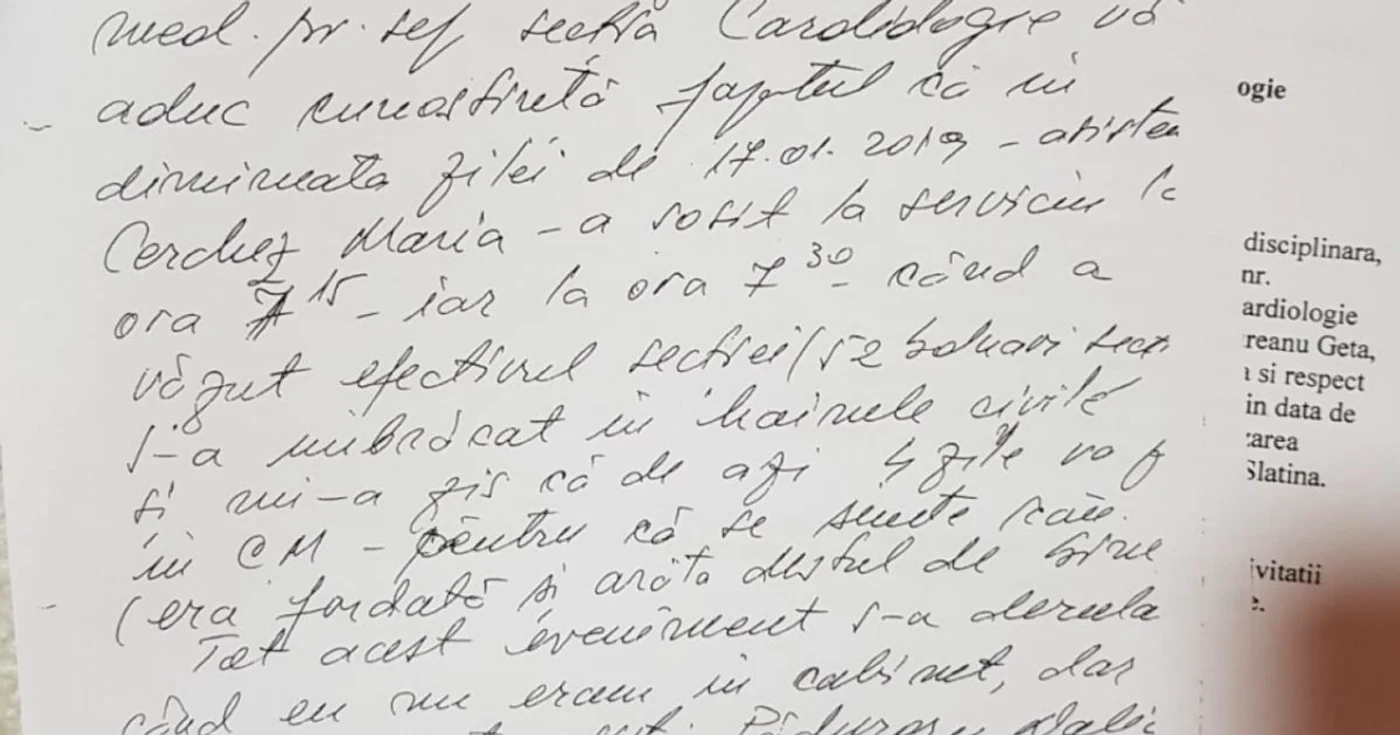 med. pr. sef secția Cardiologie vă
aduc cunoștință faptul că în
dimineața zilei de 17.01.2019 – asisten
Cerchez Maria – a sosit la serviciu la
ora 7 15 – iar la ora 7 30 – când a
văzut efectivul secției (52 bolnavi secț
s-a îmbrăcat în hainele civile
și mi-a zis că de azi 4 zile va f
în CM – pentru că se simte rău.
(era fardată și arăta destul de bine
Tot acest eveniment s-a derula
când eu nu eram în cabinet, dar
ogie
disciplinara,
nr.
ardiologie
reanu Geta,
a si respect
in data de
area
Slatina.
vitatii
e.